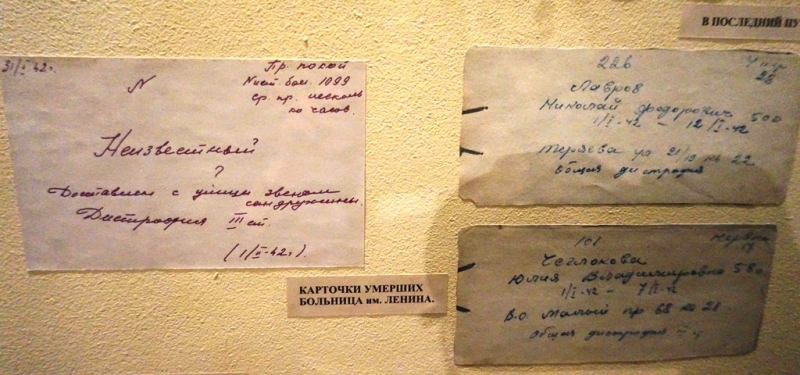 31/I 42г.
Пр. покой
N ист бол. 1099
Ср. пр. несколь
ко часов.
N
Неизвестный
?
Доставлен с улицы звеном
сандружины.
Дистрофия III ст.
(1/II-42г.)
КАРТОЧКИ УМЕРШИХ
БОЛЬНИЦА им. ЛЕНИНА.
В ПОСЛЕДНИЙ ПУ
226
28
Лавров
Николай Федорович 50л
1/I-42 - 12/I-42
21/19 кв 22
Общая дистрофия
101
17
Чеглокова
Юлия Владимировна 58л
1/I-42 - 7/I-42
В.о Малый пр 68 кв 21
Общая дистрофия